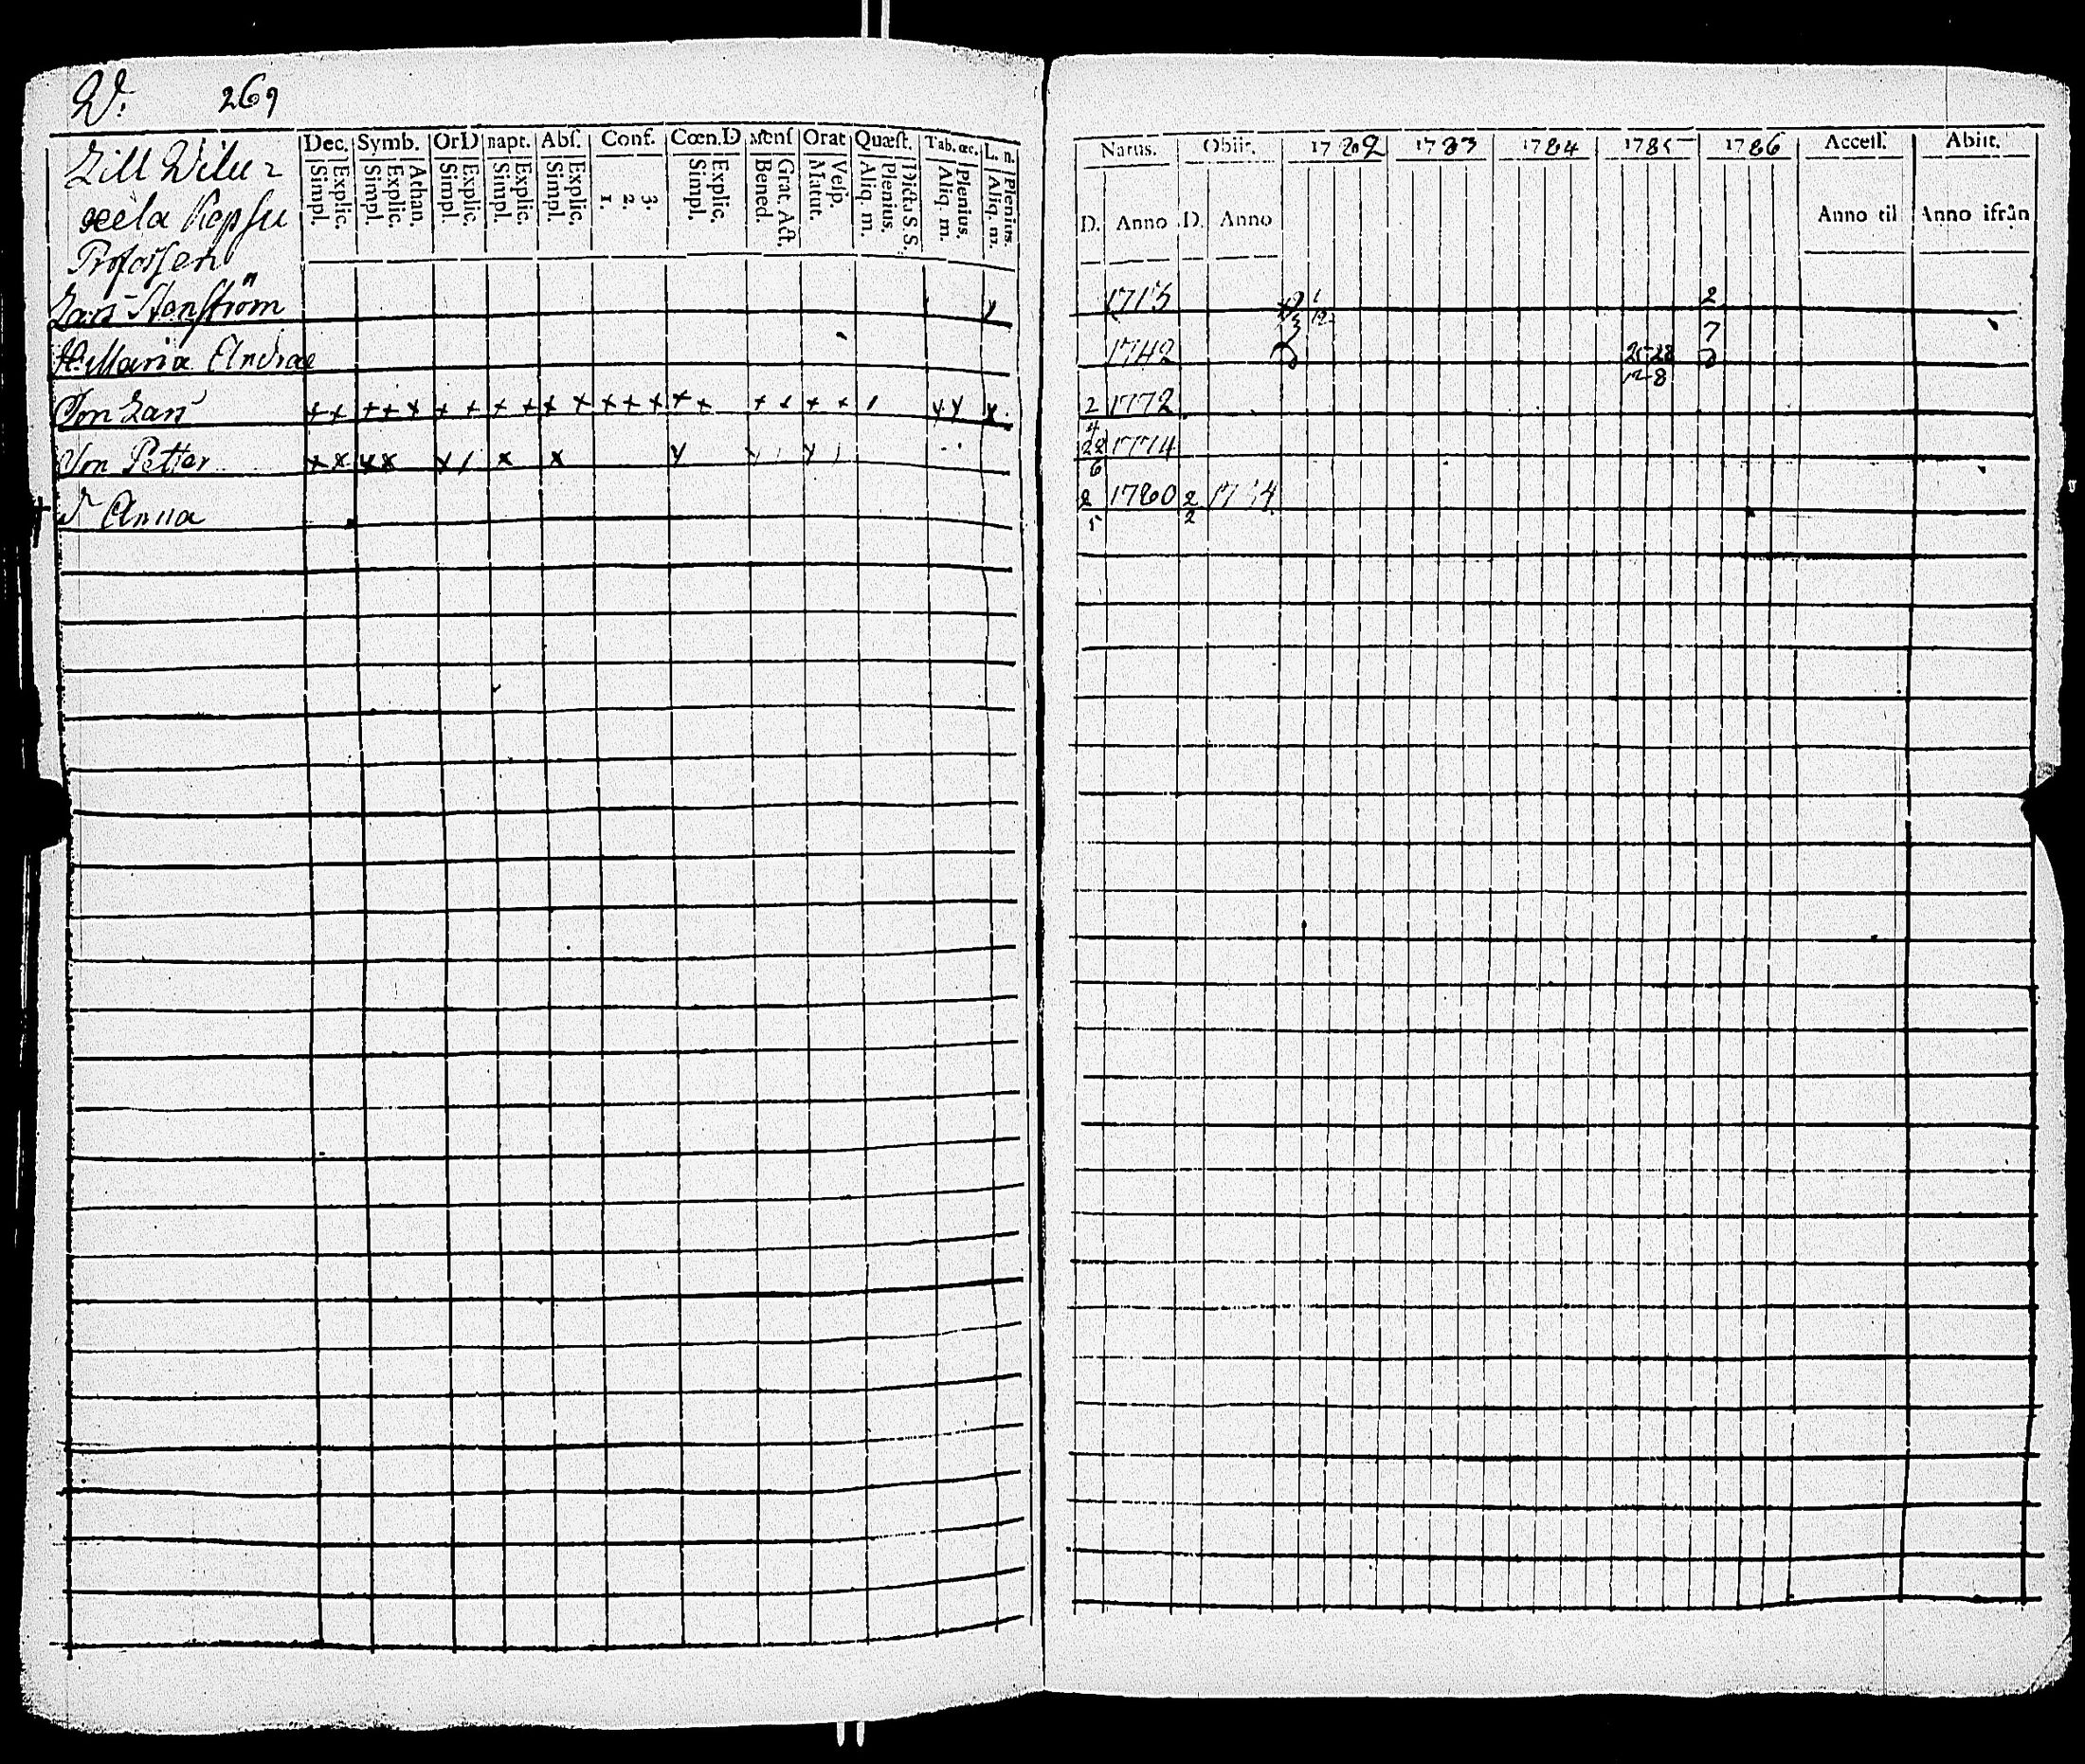 W. 269
Till Wilu-
xela Kapsu
Profossen
Dec. Symb. OrD Bapt. Abs. Conf. Cœn.D Mens Orat Quæst. Tab. œc. L. n.
Simpl. Explic. Simpl. Explic. Athan. Simpl. Explic. Simpl. Explic. Simpl. Explic. 1. 2. 3. Simpl. Explic. Bened. Grat. Act. Matut. Vesp. Aliq. m. Plenius. Dicta S. S. Aliq. m. Plenius. Aliq. m. Plenius.
Lars Stenström
H. Maria Andrae
Son Lars
Son Petter
Dr Anna
Natus. Obiit. 1782 1783 1784 1785 1786 Access. Abiit.
D. Anno D. Anno Anno til Anno ifrån
1713
1742 25-28
12-8
2/4 1772
22/6 1774
2/5 1780 2/2 1784